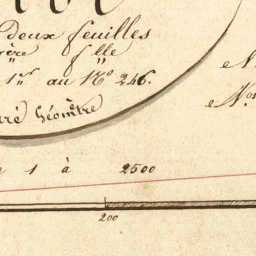 deux feuilles
ère f lle
1er au No 246.
ré Géomètre
N
Nos
1 à 2500
200